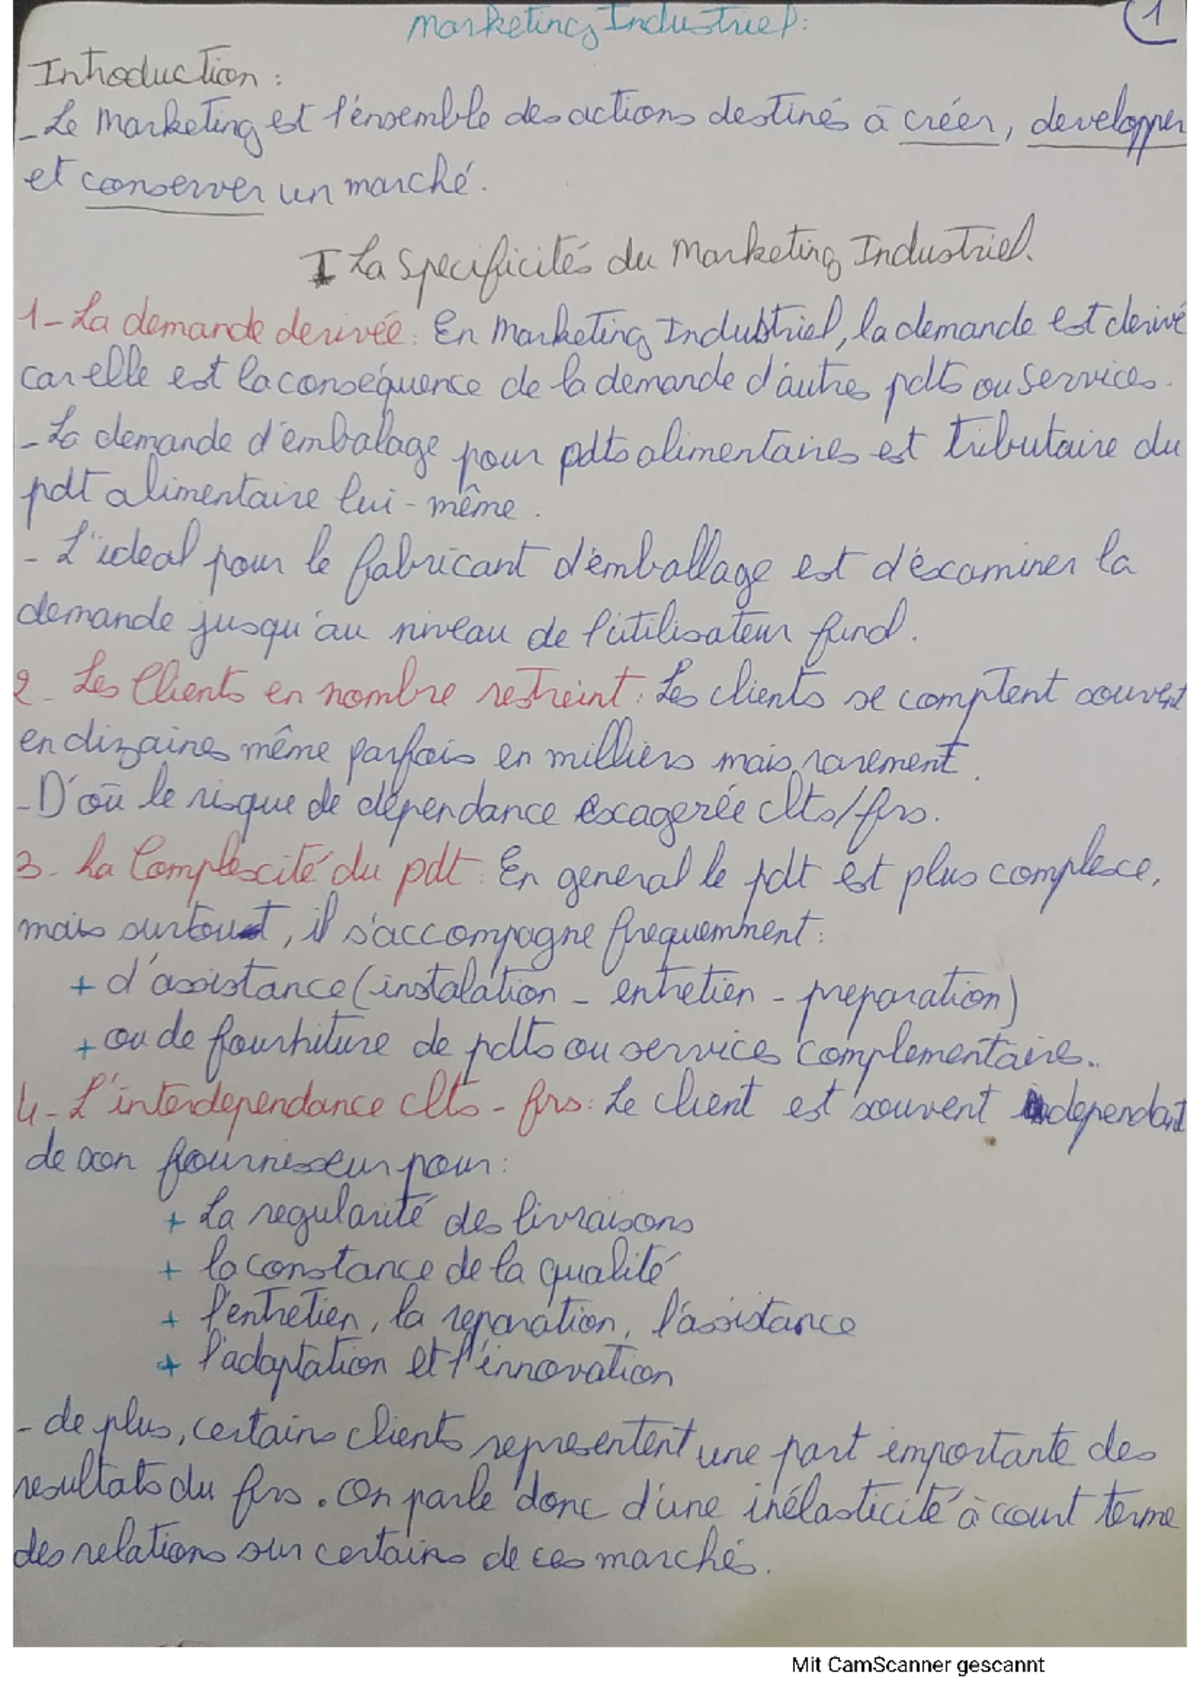 Marketing Industriel:
1
Introduction:
- Le Marketing est l'énsemble des actions destinés à créer, developper
et conserver un marché.
I La Specificités du Marketing Industriel.
1- La demande derivée: En Marketing Industriel, la demande est derivé
car elle est la conséquence de la demande d'autres pdts ou services.
- La demande d'émbalage pour pdts alimentaires est tributaire du
pdt alimentaire lui-même.
- L'ideal pour le fabricant d'émballage est d'éxaminer la
demande jusqu'au niveau de l'utilisateur final.
2- Les Clients en nombre restreint: Les clients se comptent souvent
en dizaines même parfois en milliers mais rarement.
- D'où le risque de dépendance éxagerée clts/frs.
3- La Complexcité du pdt: En general le pdt est plus complexe,
mais surtout, il s'accompagne frequemment:
+ d'assistance (instalation - entretien - preparation)
+ ou de fourniture de pdts ou services complementaires.
4- L'interdependance clts - frs: Le client est souvent dependant
de son fournisseur pour:
+ La regularité des livraisons
+ la constance de la qualité
+ l'entretien, la reparation, l'assistance
+ l'adaptation et l'innovation
- de plus, certains clients representent une part importante des
resultats du frs. On parle donc d'une inélasticité à court terme
des relations sur certains de ces marchés.
Mit CamScanner gescannt